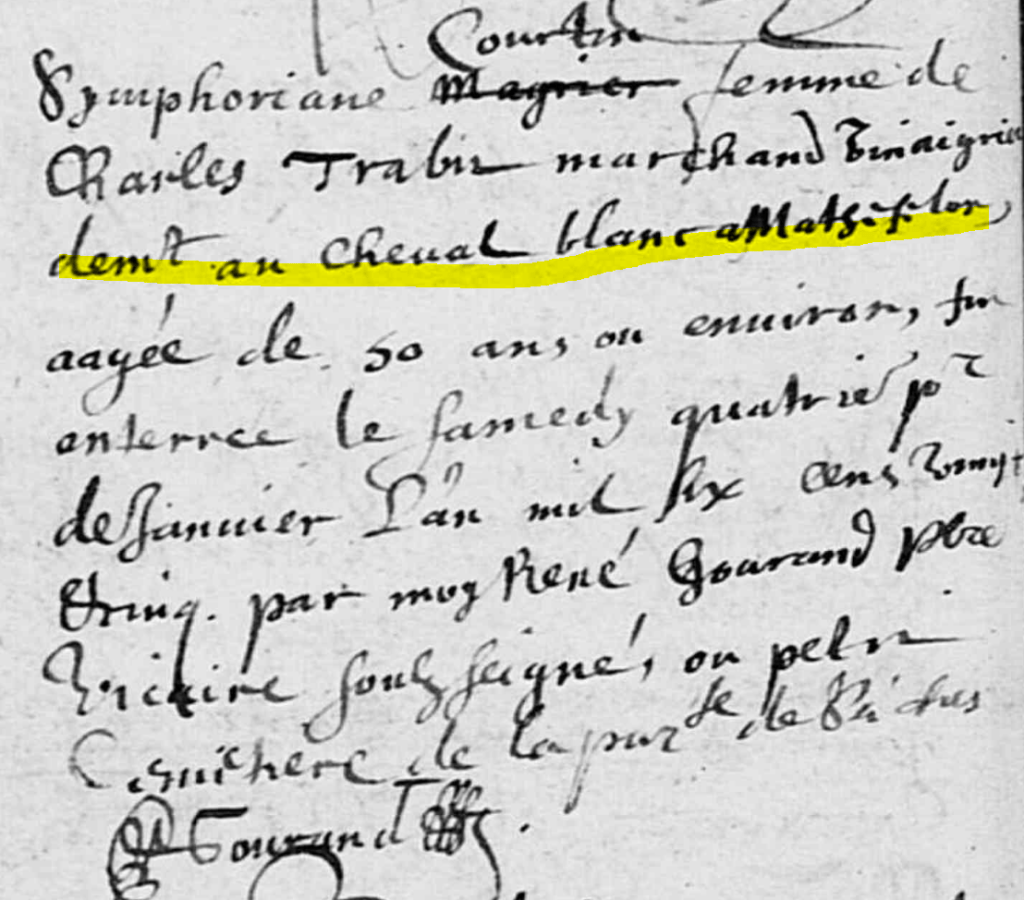 Courtin
Symphoriane Magnier femme de
Charles Trabit marchand Vinaigrier
demt au Cheval blanc a Mathefelon,
aagée de 50 ans ou environ, fut
enterree le samedy quatrie
de Janvier L'an mil six cens vingt
et cinq. par moy René Gourand pbre
Vicaire soubzseigné, ou petit
Cemithere de la
Gourand